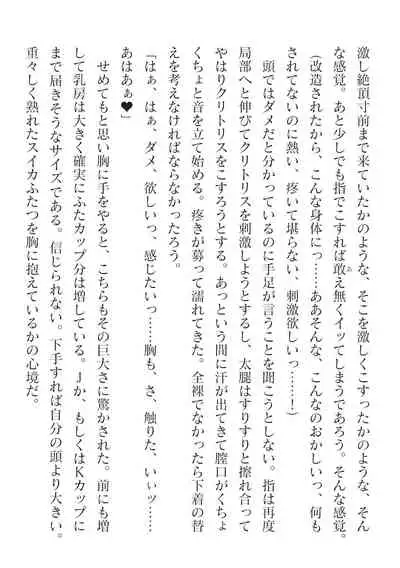 激し絶頂寸前まで来ていたかのような、そこを激しくこすったかのような、そん
な感覚。あと少しでも指でこすれば敢え無くイッてしまうであろう。そんな感覚。
（改造されたから、こんな身体にっ……ああそんな、こんなのおかしいっ、何も
されてないのに熱い、疼いて堪らない、刺激欲しいっ……！）
頭ではダメだと分かっているのに手足が言うことを聞こうとしない。指は再度
局部へと伸びてクリトリスを刺激しようとするし、太腿はすりすりと擦れ合って
やはりクリトリスをこすろうとする。あっという間に汗が出てきて膣口がくちょ
くちょと音を立て始める。疼きが募って濡れてきた。全裸でなかったら下着の替
えを考えなければならなかったろう。
「はぁ、はぁ、ダメ、欲しいっ、感じたいっ……胸も、さ、触りた、いぃッ……
あはあぁ♥」
せめてもと思い胸に手をやると、こちらもその巨大さに驚かされた。前にも増
して乳房は大きく確実にふたカップ分は増している。Ｊか、もしくはＫカップに
まで届きそうなサイズである。信じられない。下手すれば自分の頭より大きい。
重々しく熟れたスイカふたつを胸に抱えているかの心境だ。